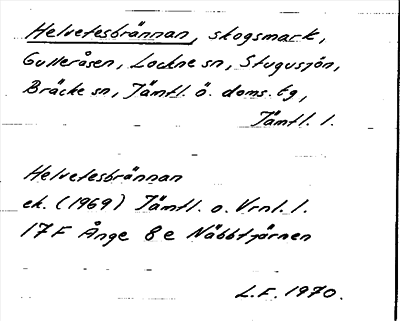 Helvetesbrännan, skogsmark,
Gulleråsen, Lockne sn, Stugusjön,
Bräcke sn, Jämtl. ö. doms. tg,
Jämtl. l.
Helvetesbrännan
ek. (1969) Jämtl. o. Vrnl. l.
17F Ånge 8e Näbbtjärnen
L.F. 1970.